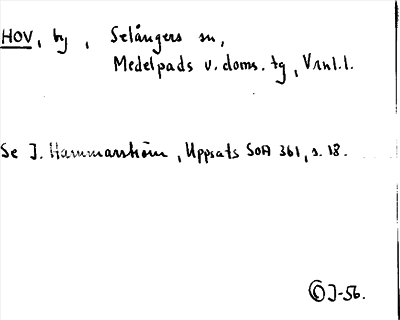 HOV, by, Selångers sn,
Medelpads v. doms. tg, Vrnl. l.
Se J. Hammarström, Uppsats SOA 361, s. 18.
© J-56.